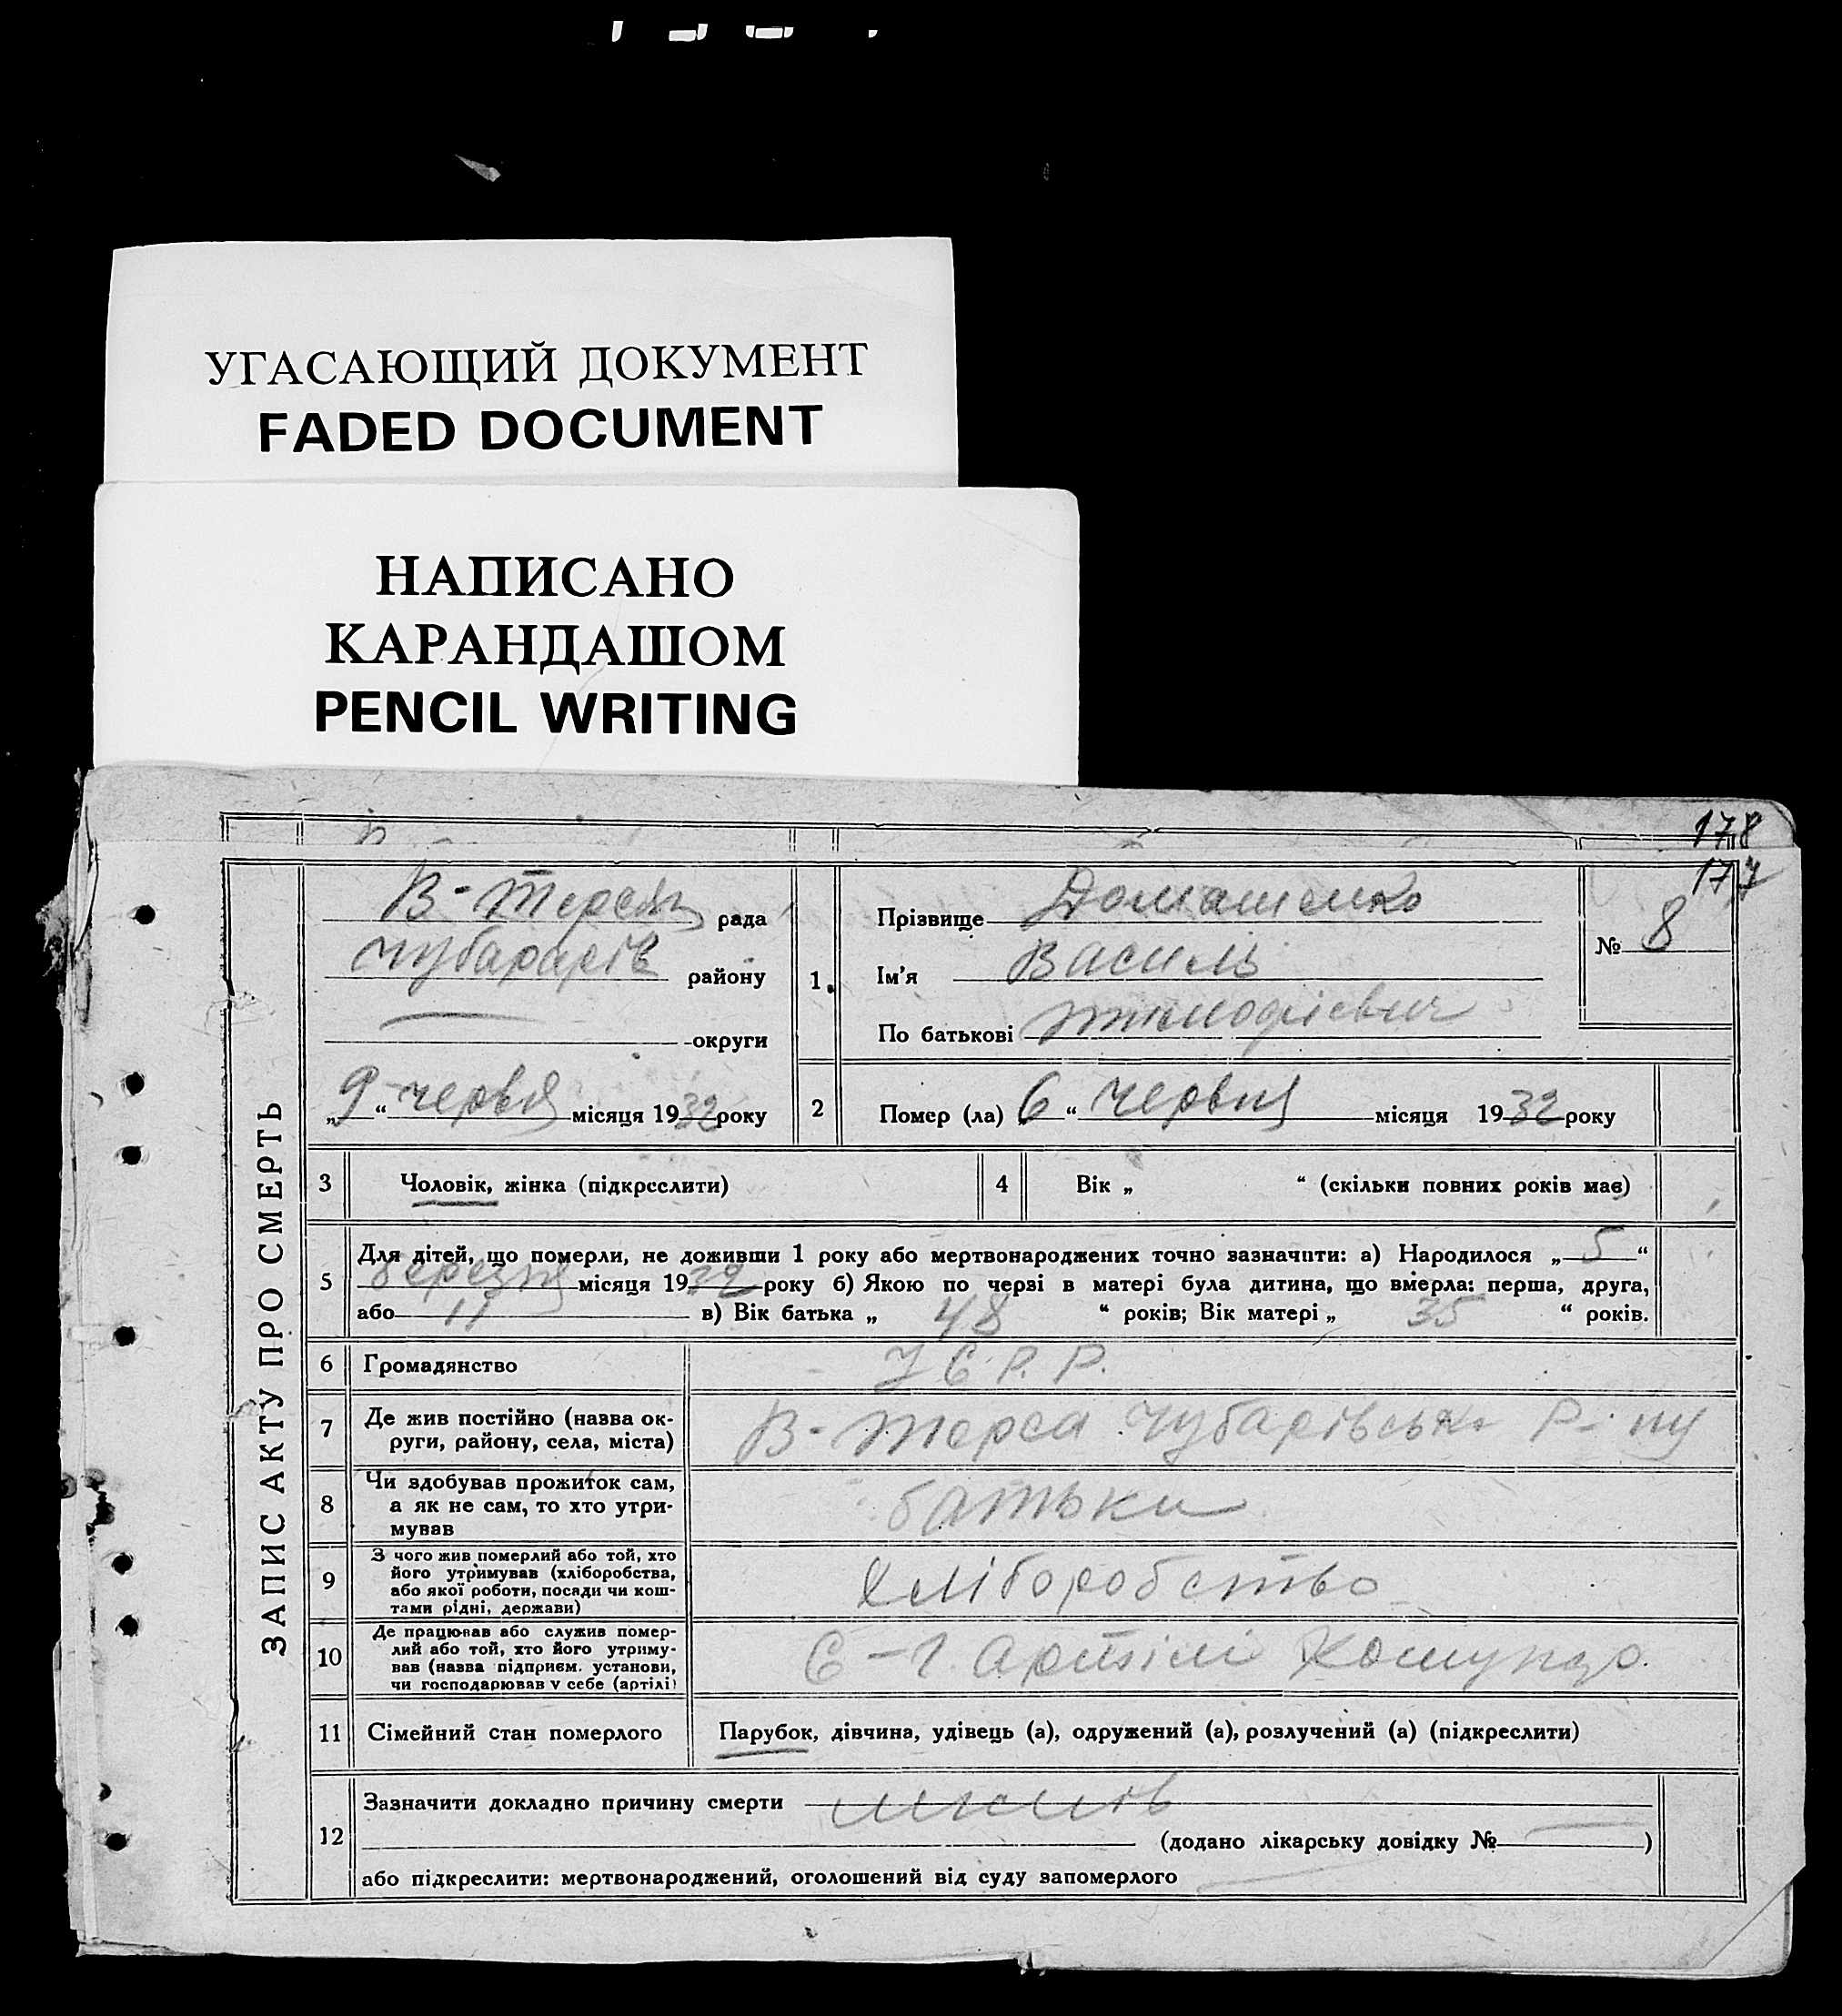 УГАСАЮЩИЙ ДОКУМЕНТ
FADED DOCUMENT
НАПИСАНО
КАРАНДАШОМ
PENCIL WRITING
178
177
ЗАПИС АКТУ ПРО СМЕРТЬ
В-Терсян рада
район
округи
„9“ червня місяця 1932 року
1. Прізвище Домашенко
Ім'я Василь
По батькові Тимофієвич
№ 8
2 Помер (ла) 6 “ червня місяця 1932 року
3 Чоловік, жінка (підкреслити)
4 Вік „ “ (скільки повних років має)
5 Для дітей, що померли, не доживши 1 року або мертвонароджених точно зазначити: а) Народилося „5“
березня місяця 1932 року б) Якою по черзі в матері була дитина, що вмерла: перша, друга,
або 11 в) Вік батька „ 48 “ років; Вік матері „ 35 “ років.
6 Громадянство У С. Р. Р.
7 Де жив постійно (назва ок-
руги, району, села, міста) В-Терса Чубарівськ Р-ну
8 Чи здобував прожиток сам,
а як не сам, то хто утри-
мував батьки
9 З чого жив померлий або той, хто
його утримував (хліборобства,
або якої роботи, посади чи кош-
тами рідні, держави) Хліборобство
10 Де працював або служив помер-
лий або той, хто його утриму-
вав (назва підприєм. установи,
чи господарював у себе (артілі) С-Г. Артілі
11 Сімейний стан померлого Парубок, дівчина, удівець (а), одружений (а), розлучений (а) (підкреслити)
12 Зазначити докладно причину смерти
(додано лікарську довідку № )
або підкреслити: мертвонароджений, оголошений від суду запомерлого